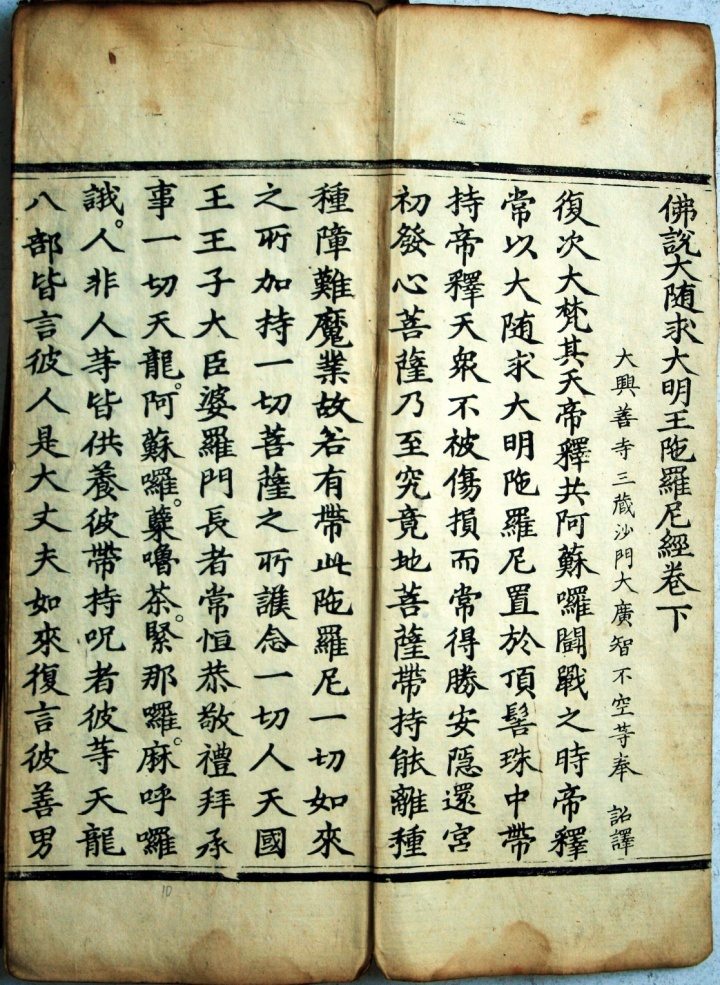 佛說大随求大明王陁羅尼經卷下
大興善寺三藏沙門大廣智不空等奉 詔譯
復次大梵其天帝釋共阿蘇囉鬪戰之時帝釋
常以大随求大明陁羅尼置於頂髻珠中帶
持帝釋天衆不被傷損而常得勝安隱還宮
初發心菩薩乃至究竟地菩薩帶持能離種
種障難魔業故若有帶此陁羅尼一切如來
之所加持一切菩薩之所護念一切人天國
王王子大臣婆羅門長者常恒恭敬禮拜承
事一切天龍。阿蘇囉。蘖嚕荼。緊那囉。麻呼囉
誐。人非人等皆供養彼帶持呪者彼等天龍
八部皆言彼人是大丈夫如來復言彼善男
10